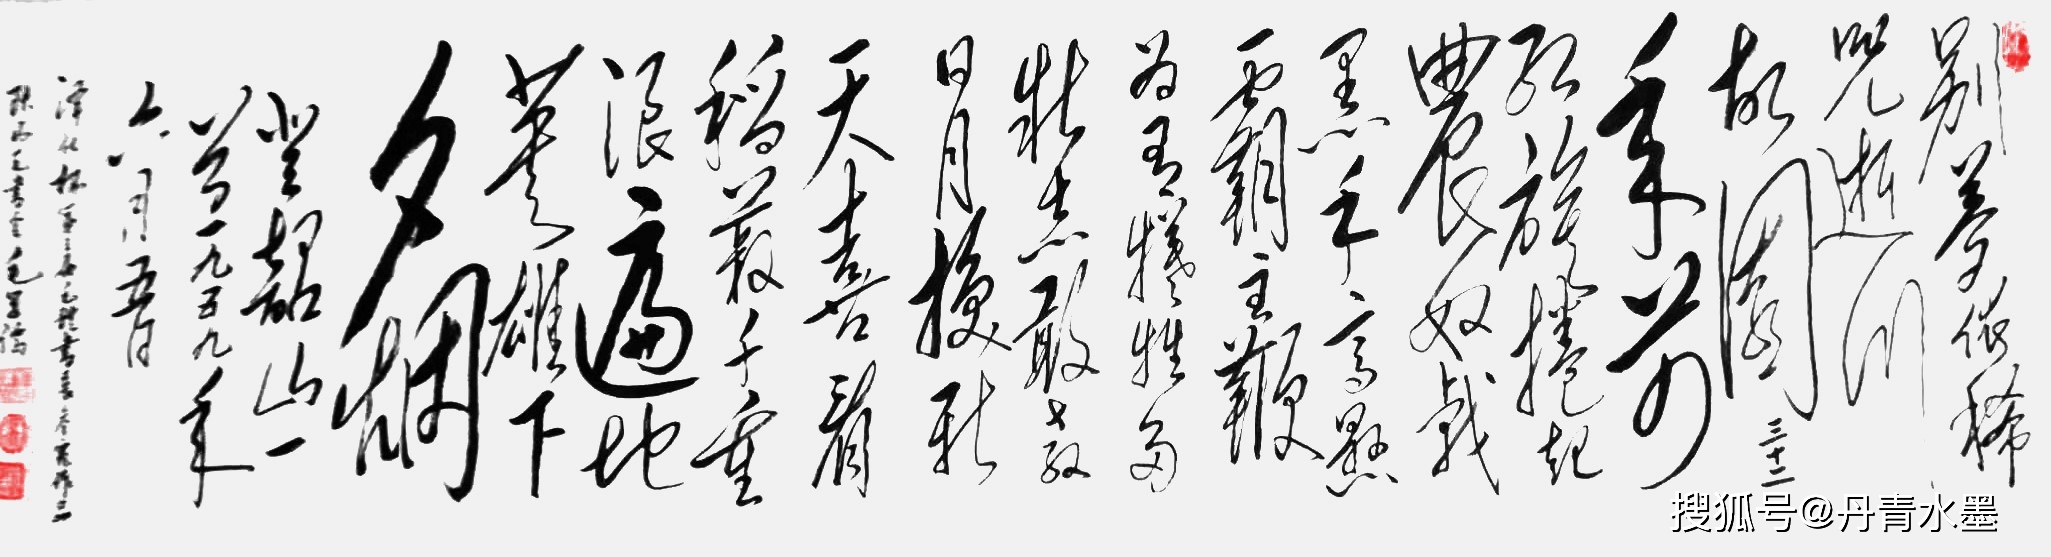 别夢依稀
咒逝川
故園三十二
年前
红旗捲起
農奴戟
黑手高悬
霸主鞭
为有犧牲多
壯志敢教
日月換新
天喜看
稻菽千重
浪遍地
英雄下
夕烟
登韶山一
首一九五九年
六月五日
搜狐号@丹青水墨